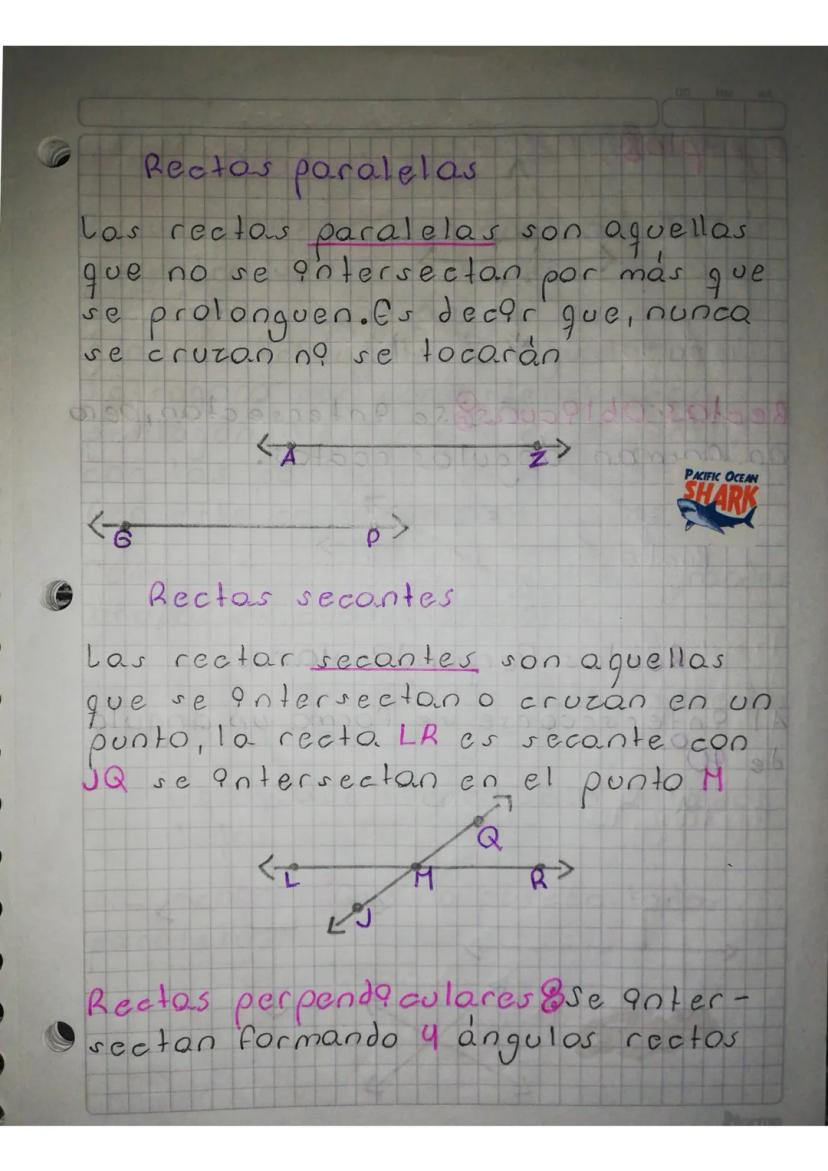 Rectas paralelas
Las rectas paralelas son aquellas
que no se intersectan por más que
se prolonguen. Es decir que, nunca
se cruzan ni se tocarán
A Z
PACIFIC OCEAN
SHARK
G P
Rectas secantes
Las rectar secantes son aquellas
que se intersectan o cruzan en un
punto, la recta LR es secante con
JQ se intersectan en el punto M
Q
L M R
J
Rectas perpendiculares: Se inter-
sectan formando 4 ángulos rectos